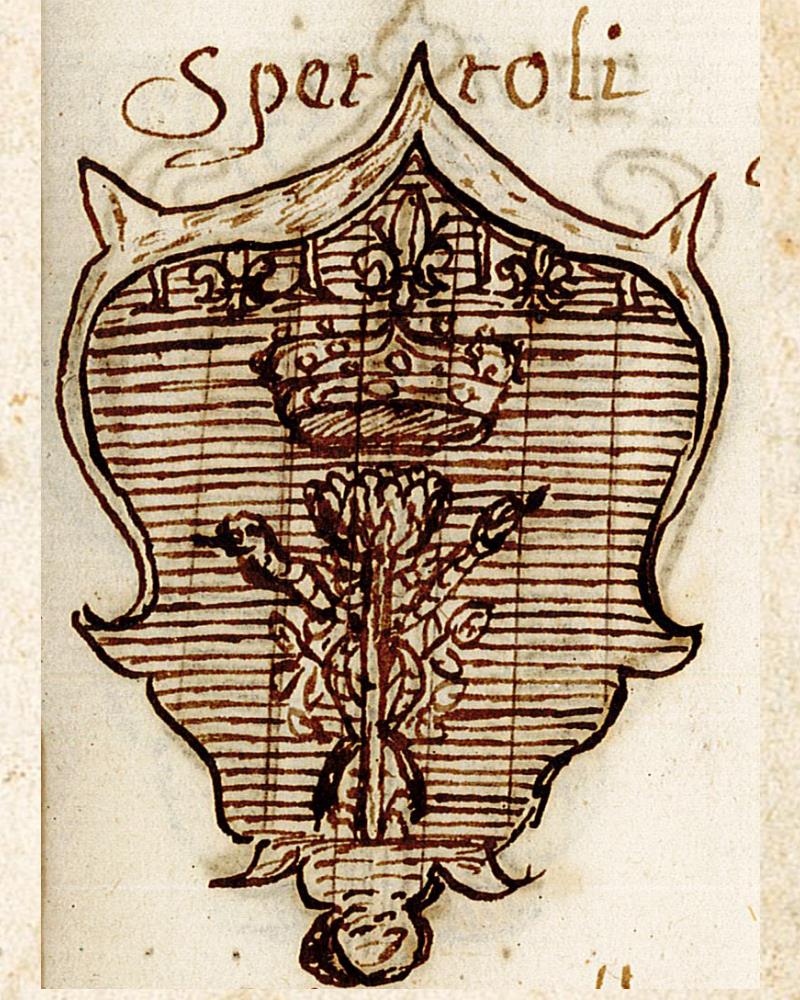 Spet toli